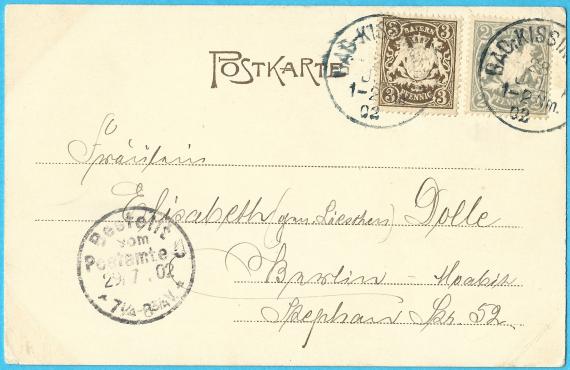 POSTKARTE
BAD-KISSIN
1-2
02
3 BAYERN 3
3 PFENNIG 3
2 2
2 PFENNIG 2
BAD-KISSIN
1-2 Nm.
02
Fräulein
Elisabeth (gen. Lieschen) Dolle
Berlin - Moabit
Stephan Str. 52
Bestellt
vom
Postamte
29. 7. 02
7¼-8¼V.